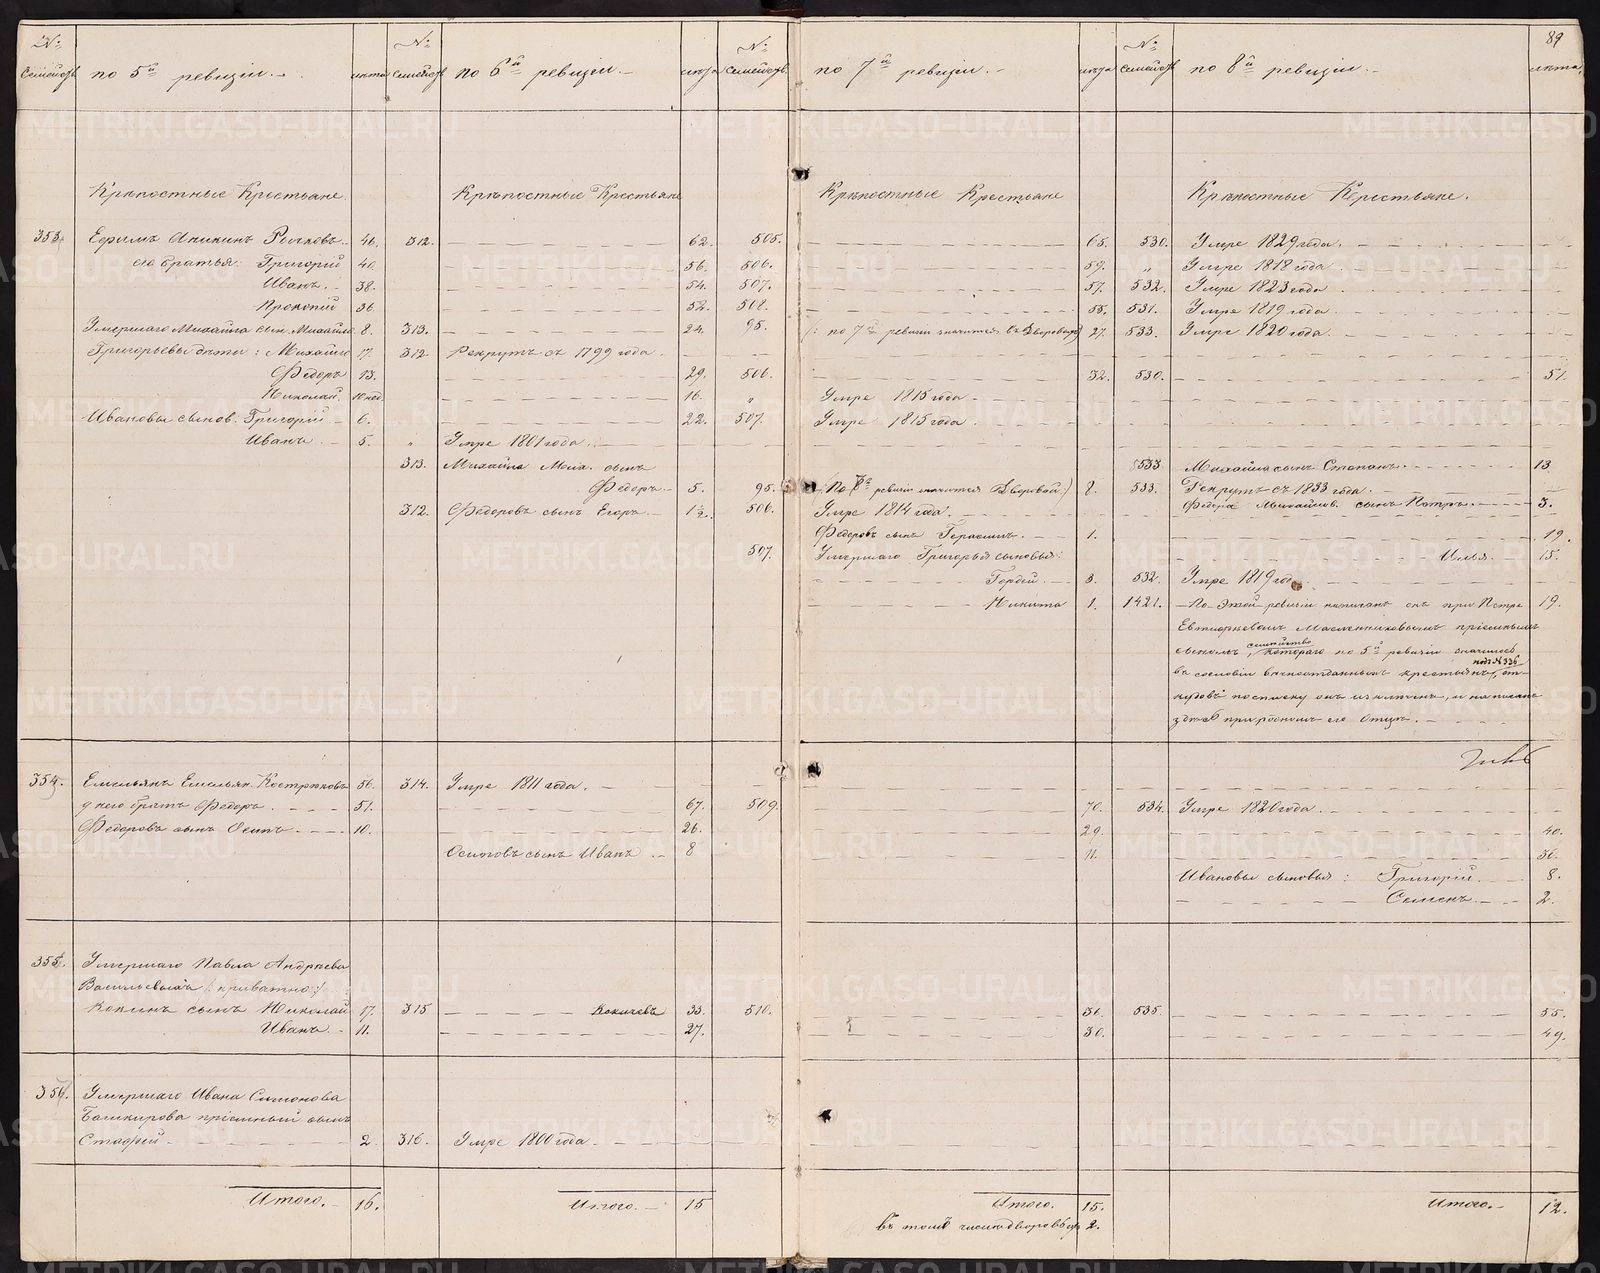 89
№ семействъ по 5й ревизіи. лѣта № семействъ по 6й ревизіи. лѣта № семейств. по 7й ревизіи. лѣта № семействъ по 8й ревизіи. лѣта
Крѣпостные Крестьяне. Крѣпостные Крестьяне Крѣпостные Крестьяне Крѣпостные Крестьяне.
353. Ефимъ Аникинъ 46. 312. 62. 505. 65. 530. Умре 1829 года.
его братья: Григорій 40. 56. 506. 59. „ Умре 1818 года
Иванъ. 38. 54. 507. 57. 532. Умре 1823 года
Прокопій 36 52. 508. 55. 531. Умре 1819 года.
Умершаго Михайла сын. Михайло 8. 313. 24. 95. /: по 7й ревизіи значится въ Дворовых 27. 533. Умре 1820 года.
Григорьевы дѣти: Михайло 17. 312. Рекрутъ съ 1799 года.
Федоръ 13. 29. 506. 32. 530. 51.
Николай. 16. „ Умре 1815 года.
Ивановы сынов. Григорій 6. 22. 507. Умре 1815 года.
Иванъ. 5. „ Умре 1801 года.
313. Михайла Мих. сынъ 533 Михайла сынъ Степанъ. 13
Федоръ 5. 95. /: По 7й ревизіи значится Дворовой :/ 8. 533. Рекрутъ съ 1833 года.
312. Федоровъ сынъ Егоръ. 1½. 506. Умре 1814 года. Федора Михайлов. сынъ Петръ. 3.
Федоровъ сынъ Герасимъ. 1. 19.
507. Умершаго Григорья сыновья: Илья. 15.
Гордей 3. 532. Умре 1819 год
Никита 1. 1421. По этой ревизіи написанъ онъ при Петре 19.
пріемнымъ
сыномъ, семейство котораго по 5й ревизіи значилось
въ сословіи вѣчноотданныхъ крестьянъ, подъ № 336 от-
куда по списку онъ исключенъ, и написанъ
здѣсь при родномъ его Отцѣ.
354. Емельянъ Емельян. 56. 314. Умре 1811 года.
у него братъ Федоръ. 51. 67. 509. 70. 534. Умре 1820 года.
Федоровъ сынъ Осипъ. 10. 26. 29. 40.
Осиповъ сынъ Иванъ 8 11. 30.
Ивановы сыновья: Григорій 8.
Семенъ 2.
355. Умершаго Павла Андреева
Васильевыхъ /: приватно :/
Кокинъ сынъ Николай 17. 315 33. 510. 36. 535. 55.
Иванъ 11. 27. 30. 49.
356. Умершаго Ивана Симонова
Башкирова пріемный сынъ
2 316. Умре 1800 года.
Итого. 16. Итого. 15 Итого. 15. Итого. 12.
въ томъ числѣ дворовых 2.
METRIKI.GASO-URAL.RU